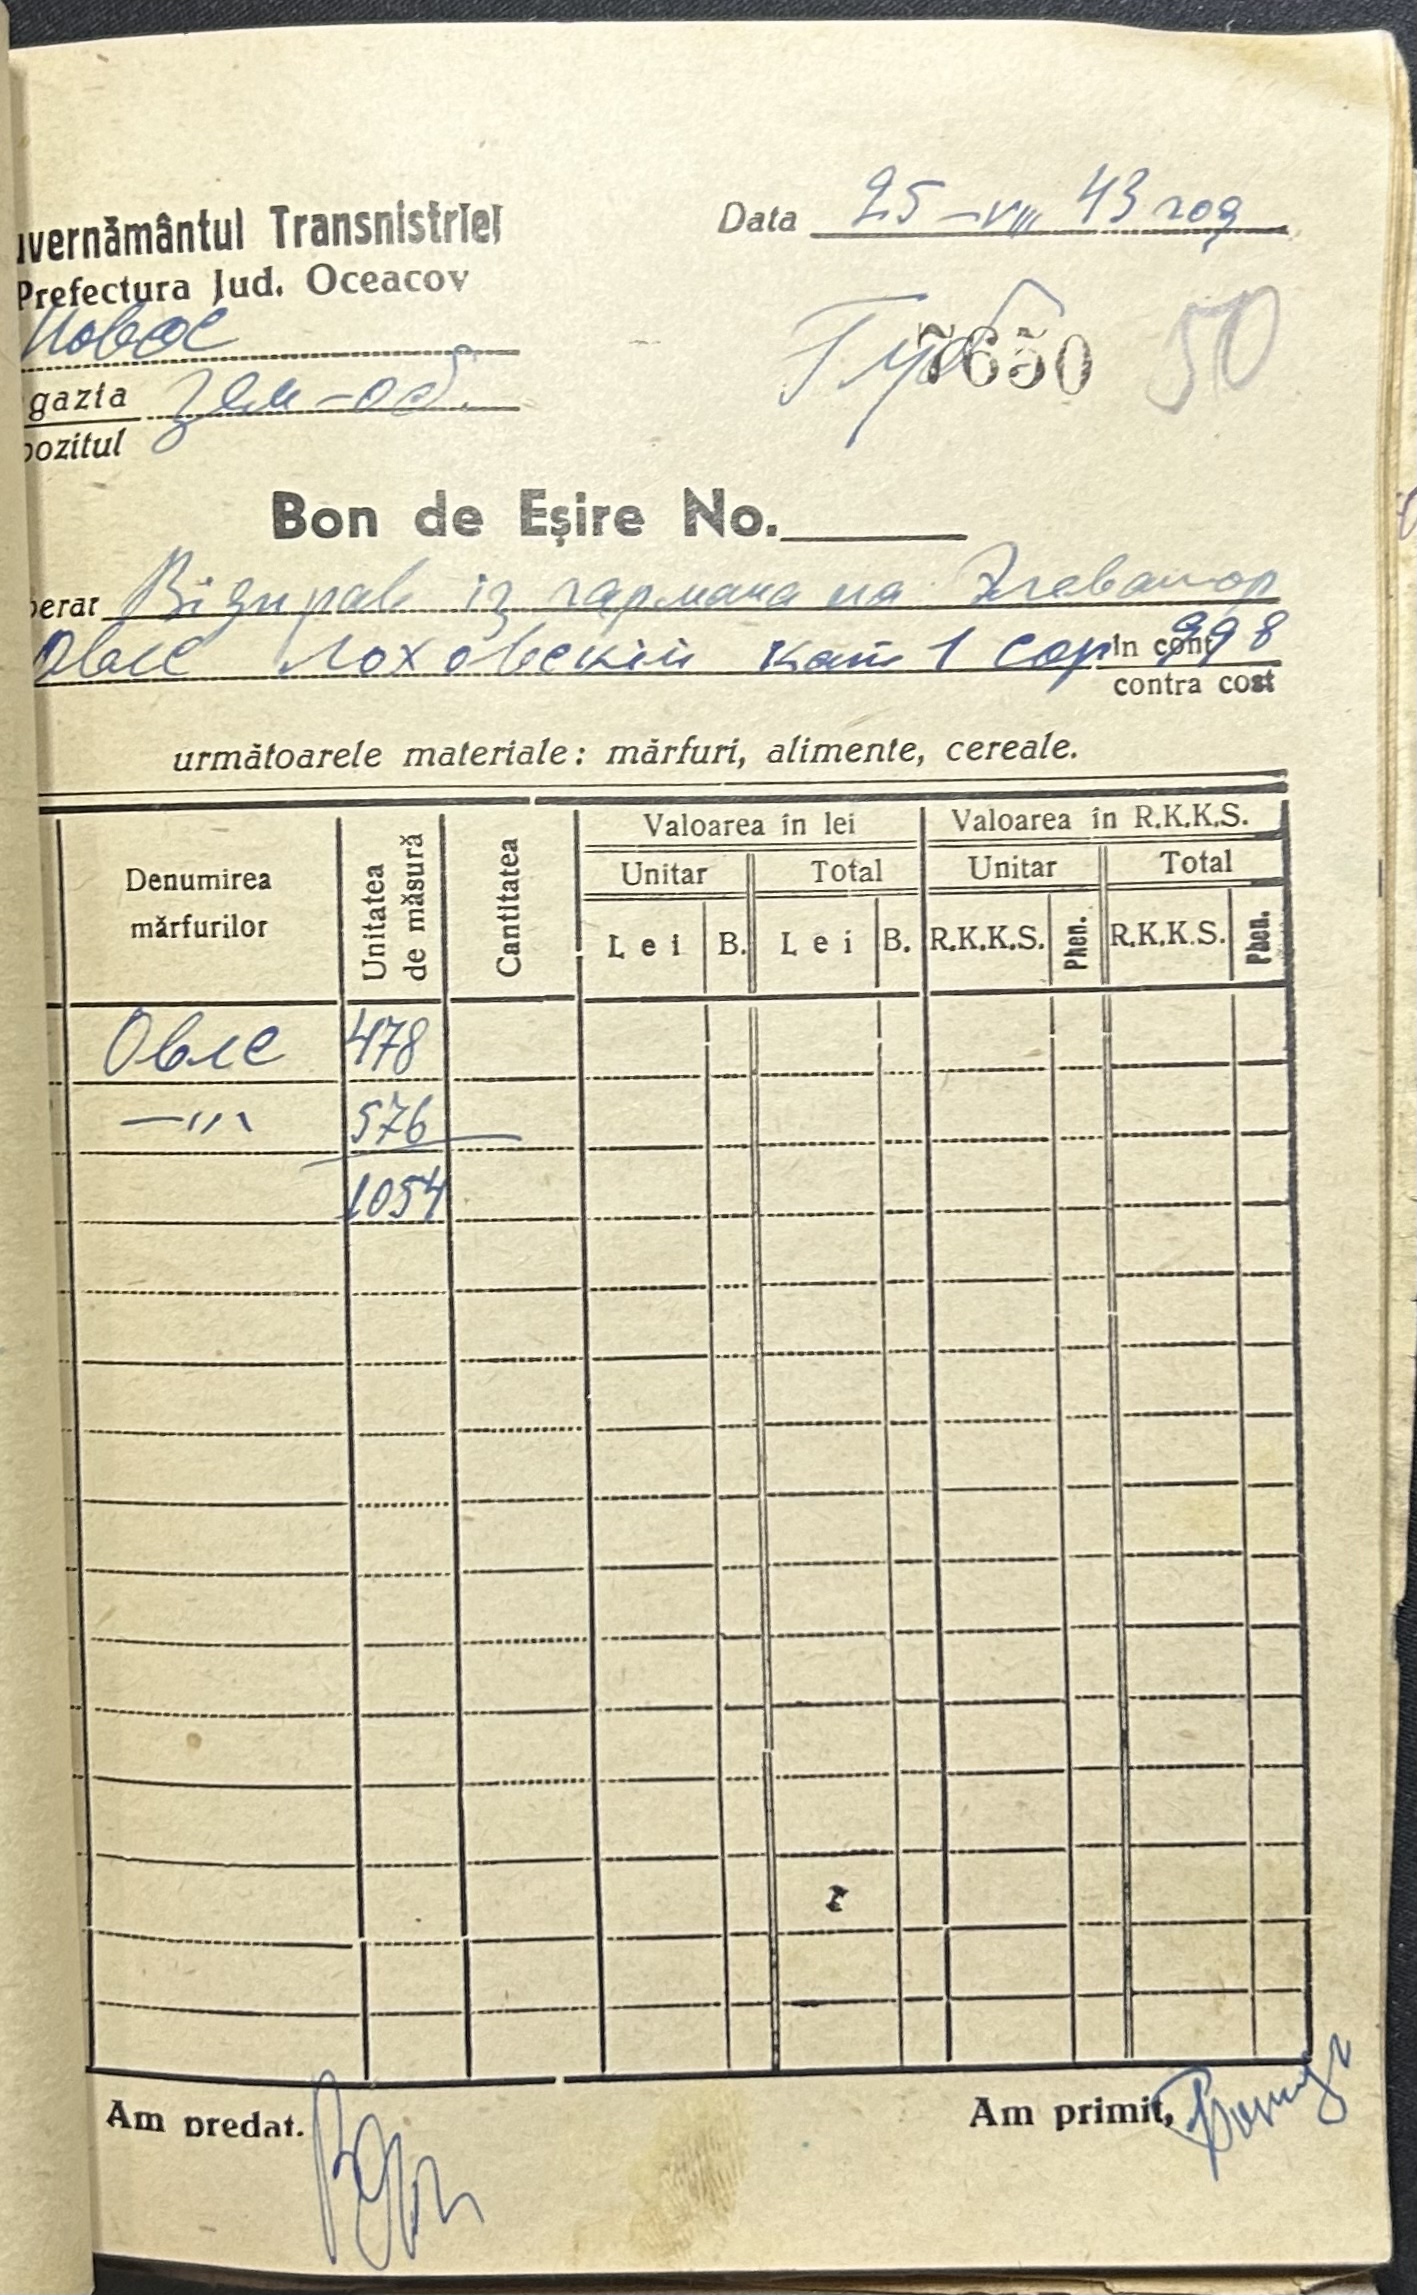 uvernământul Transnistriei
Data 25-VIII 43 год
Prefectura Jud. Oceacov
7650 50
gazia зем-об.
pozitul
Bon de Eşire No.
berat Відправ із гармана на Элеватор
Овес Лоховский кат 1 сор In cont 998
contra cost
următoarele materiale: mărfuri, alimente, cereale.
Denumirea mărfurilor
Unitatea de măsură
Cantitatea
Valoarea în lei
Valoarea în R.K.K.S.
Unitar Total Unitar Total
Lei B. Lei B. R.K.K.S. Phen. R.K.K.S. Phen.
Овес 478
—〃— 576
1054
Am predat.
Am primit,